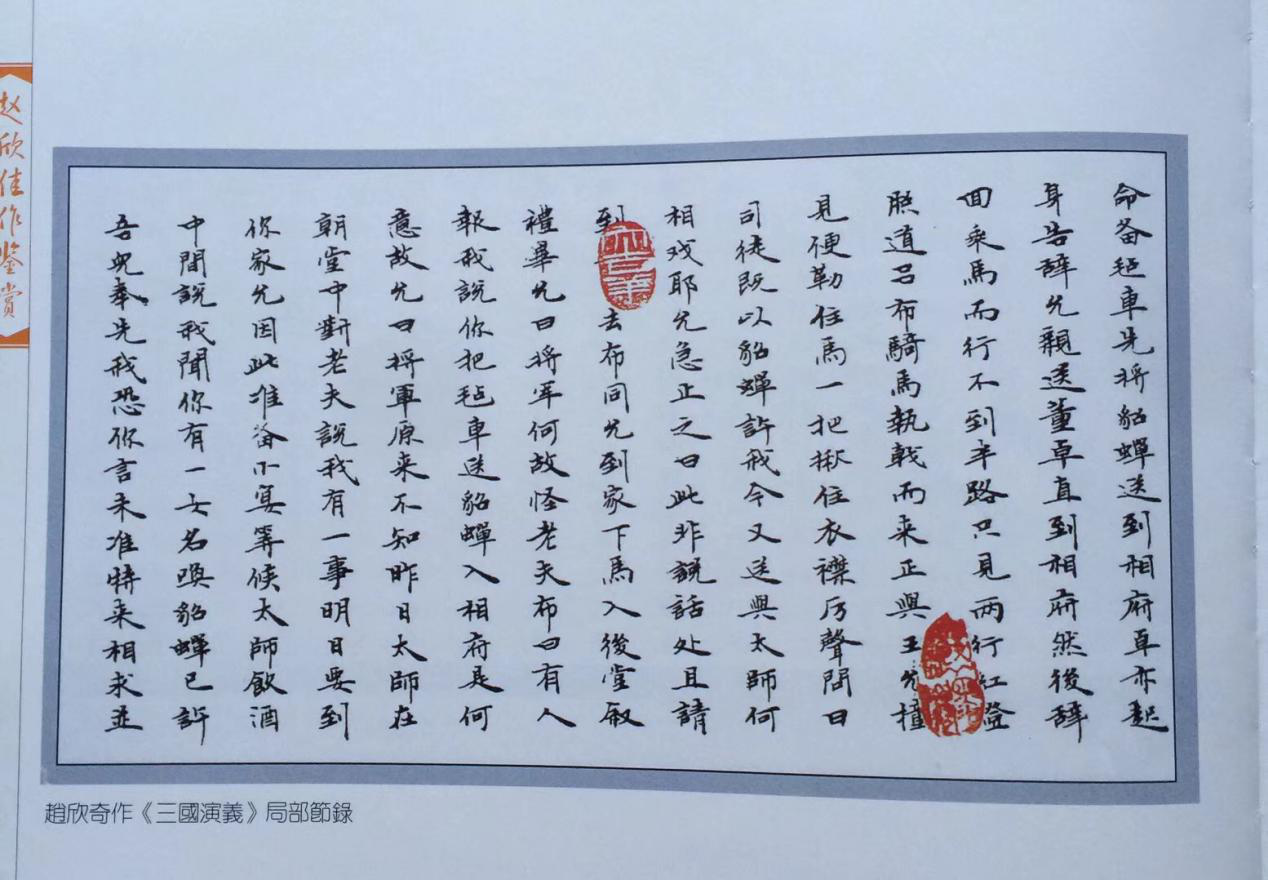 赵欣佳作鉴赏
命备毡車先將貂蟬送到相府卓亦起
身告辞允親送董卓直到相府然後辞
回乘馬而行不到半路只見两行红燈
照道吕布騎馬執戟而来正與王允撞
見便勒住馬一把揪住衣襟厉聲問曰
司徒既以貂蟬許我今又送與太師何
相戏耶允急止之曰此非説話处且請
到去布同允到家下馬入後堂叙
禮畢允曰將军何故怪老夫布曰有人
報我説你把毡車送貂蟬入相府是何
意故允曰將軍原来不知昨日太師在
朝堂中對老夫説我有一事明日要到
你家允因此准备小宴等候太師飲酒
中間説我聞你有一女名唤貂蟬已許
吾兒奉先我恐你言未准特来相求並
趙欣奇作《三國演義》局部節錄